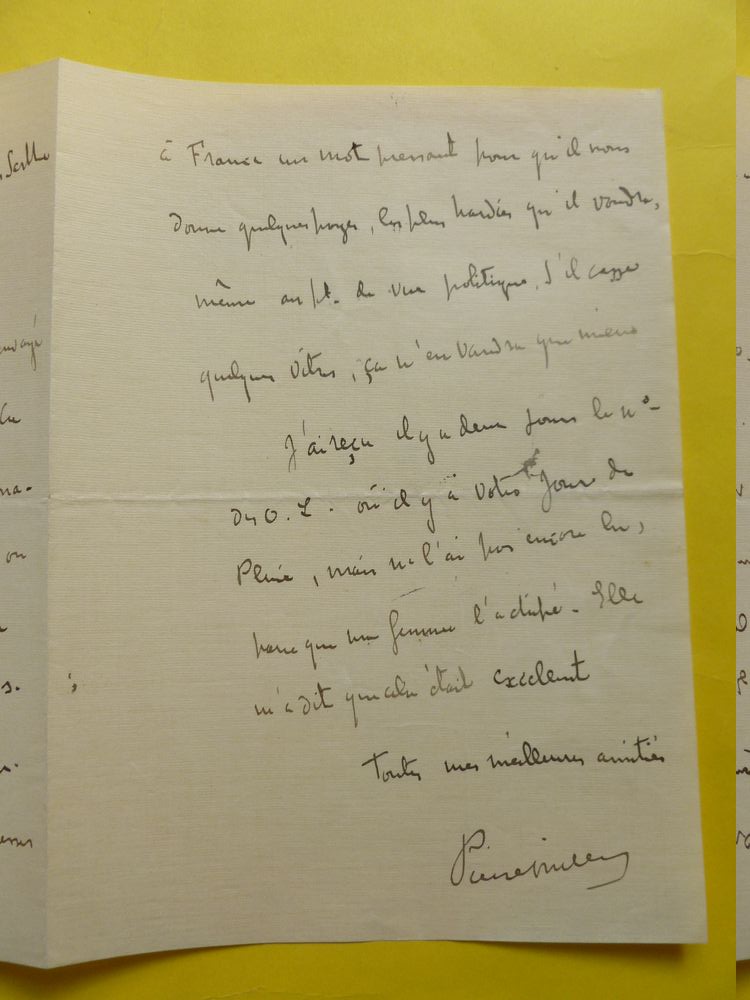 à France un mot pressant pour qu'il nous
donne quelques pages, les plus hardies qu'il voudra,
même au pt. de vue politique. S'il casse
quelques vitres, ça n'en vaudra que mieux
J'ai reçu il y a deux jours le n°-
des O. L. où il y a votre Jour de
Pluie, mais ne l'ai pas encore lu,
parce que ma femme l'a chipé. Elle
m'a dit que cela était excellent
Toutes mes meilleures amitiés